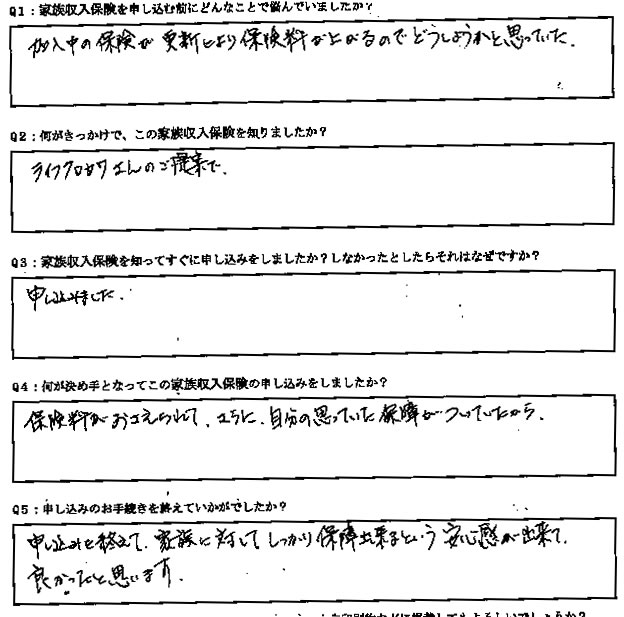 Q1：家族収入保険を申し込む前にどんなことで悩んでいましたか？
加入中の保険が更新により保険料が上がるのでどうしようかと思っていた.
Q2：何がきっかけで、この家族収入保険を知りましたか？
さんのご提案で.
Q3：家族収入保険を知ってすぐに申し込みをしましたか？しなかったとしたらそれはなぜですか？
申し込みました.
Q4：何が決め手となってこの家族収入保険の申し込みをしましたか？
保険料がおさえられて、さらに、自分の思っていた保障がついていたから.
Q5：申し込みのお手続きを終えていかがでしたか？
申し込みを終えて、家族に対してしっかり保障出来るという安心感が出来て、
良かったと思います.